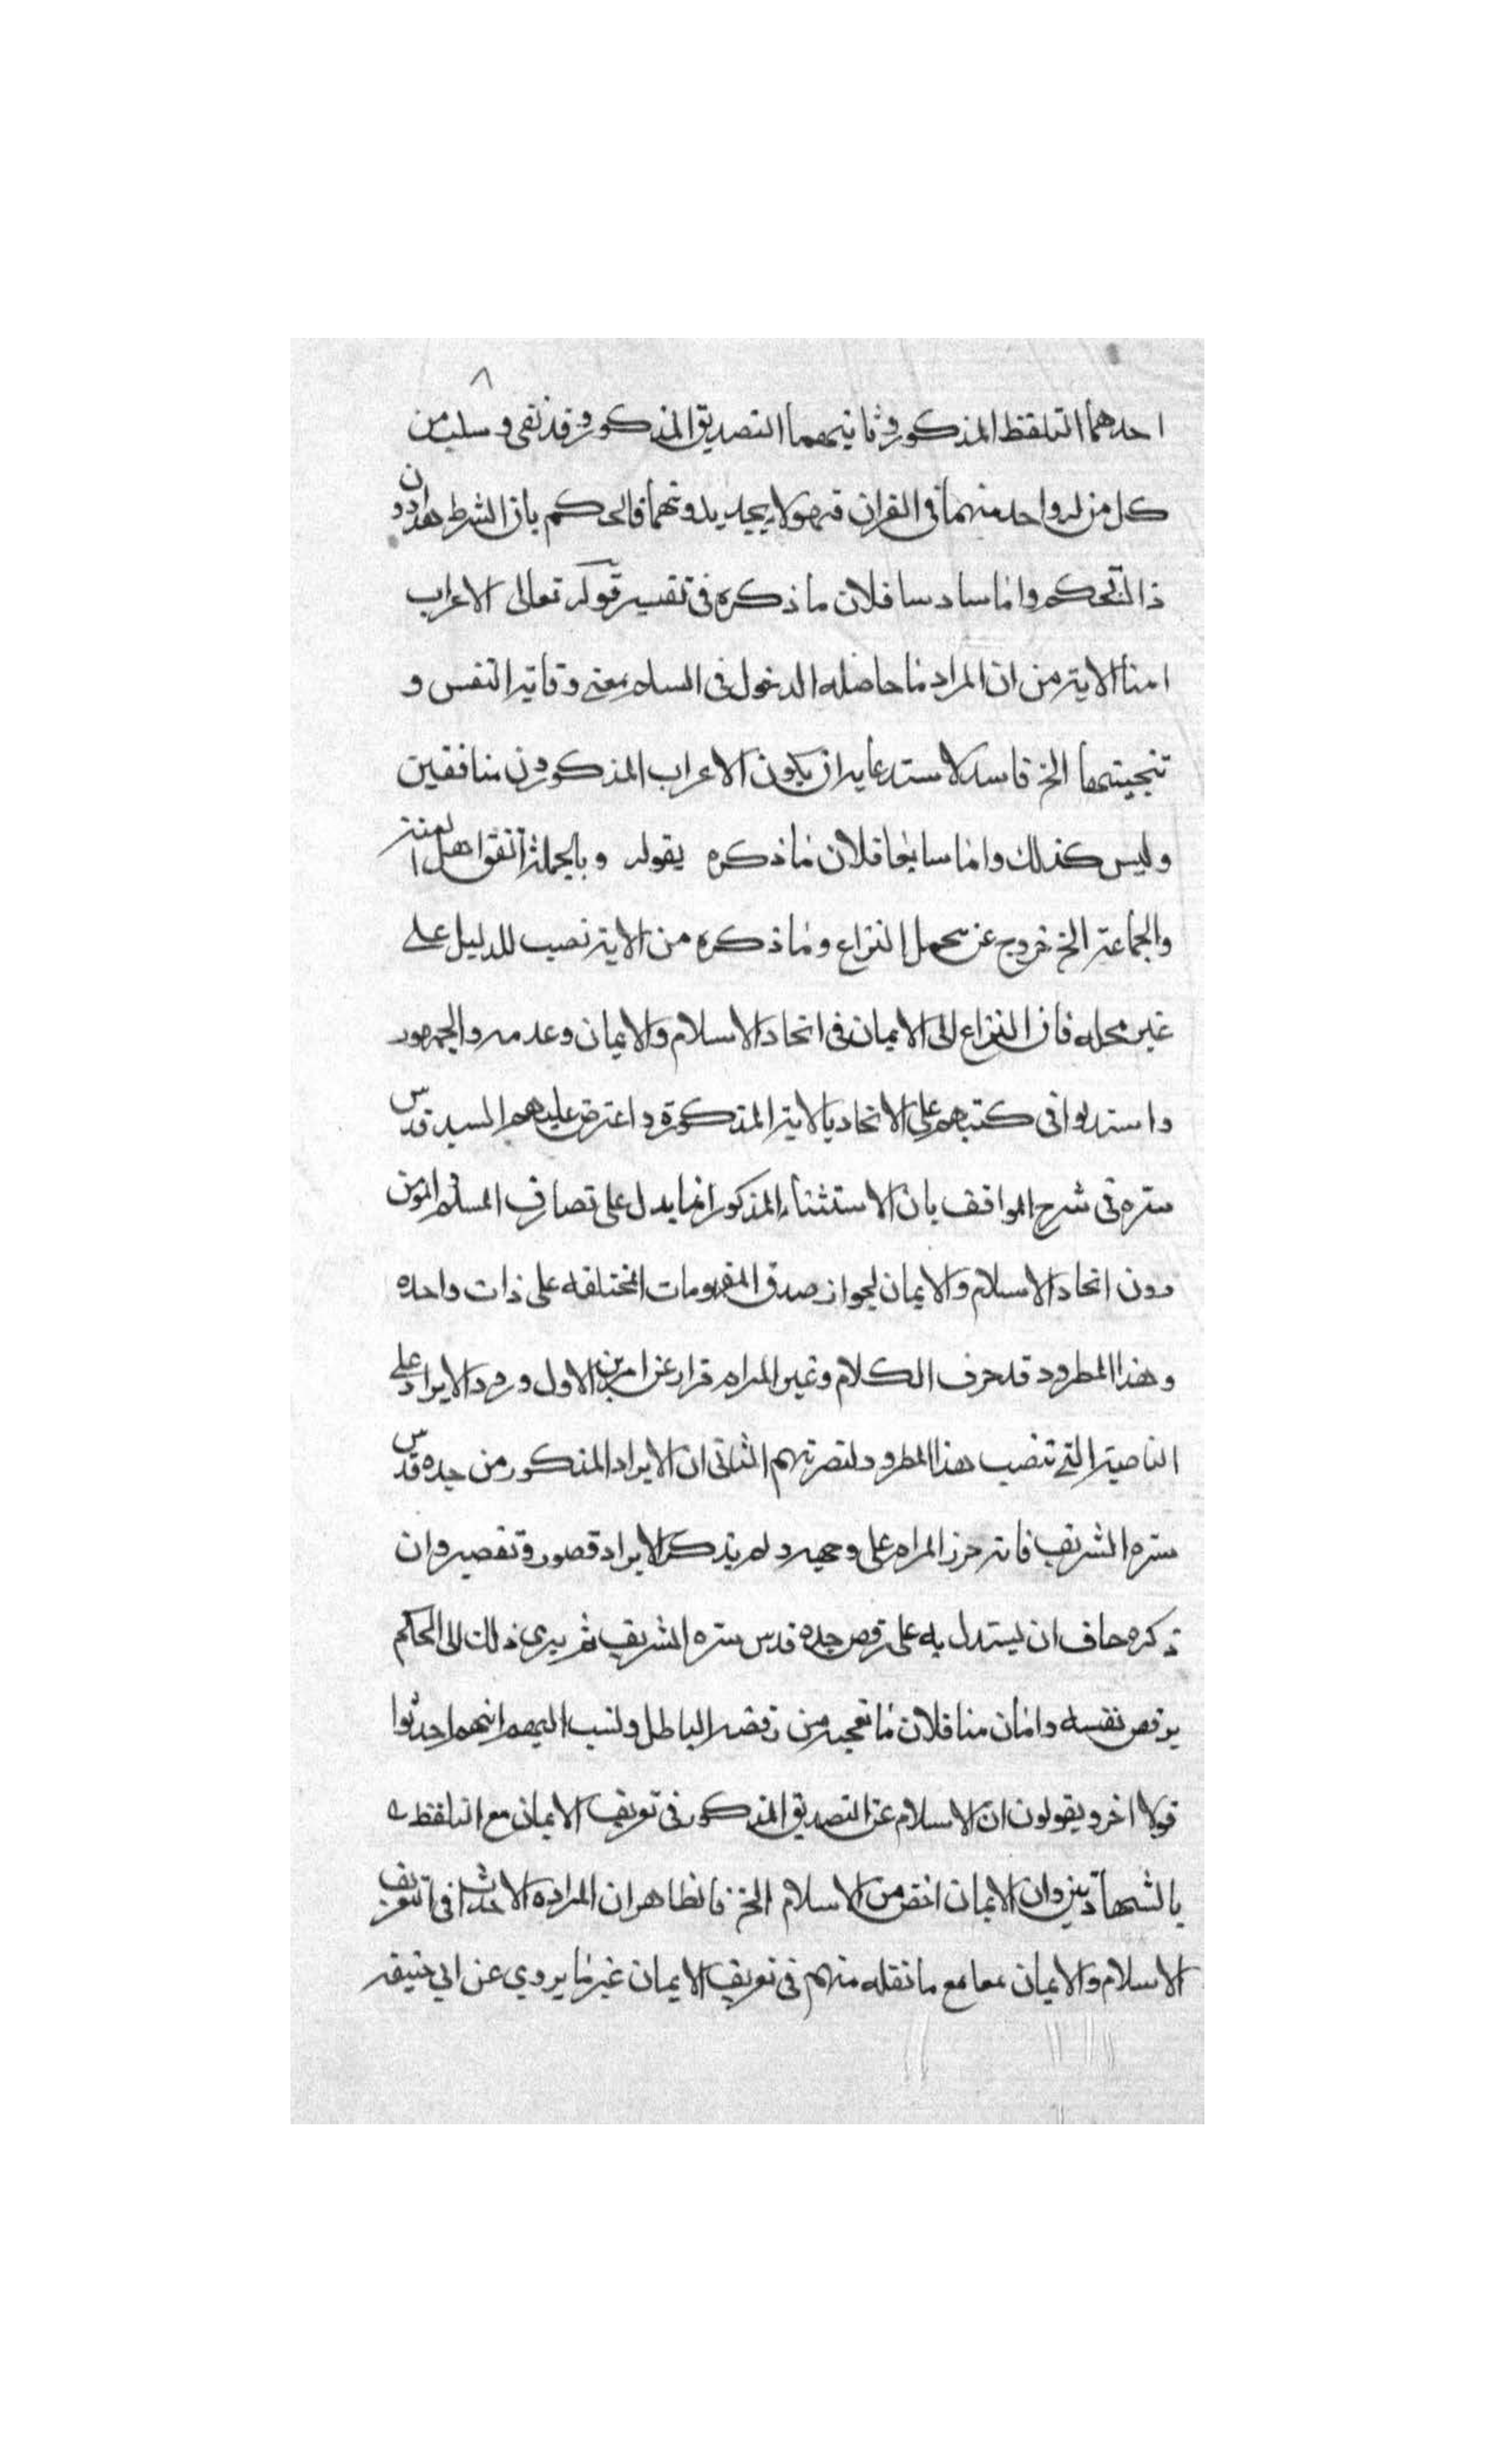 احدهما التلفظ المذكور وثانيهما التصديق المذكور وقد نفى وسلب من
كل من له واحد منهما في القران فهو لا يجديه بدونهما فالحكم بان الشرط هذا دون
ذا لتحكم واما سادسا فلان ما ذكره في تفسير قوله تعالى الاعراب
امنا الاية من ان المراد ما حاصله الدخول في السلم بمعنى وقاية النفس و
تنجيتها الخ فاسد لاستدعايه ان يكون الاعراب المذكورون منافقين
وليس كذلك واما سابعا فلان ما ذكره بقوله وبالجملة اتفق اهل السنة
والجماعة الخ خروج عن محل النزاع وما ذكره من الاية نصب للدليل على
غير محله فان النزاع الى الايمان في اتحاد الاسلام والايمان وعدمه والجمهور
واستدلوا في كتبهم على الاتحاد بالاية المذكورة واعترض عليهم السيد قدس
سره في شرح المواقف بان الاستثناء المذكور انما يدل على تصادق المسلم والمؤمن
دون اتحاد الاسلام والايمان لجواز صدق المفهومات المختلفه على ذات واحده
وهذا المطرود قد حرف الكلام وغير المرام فرارا عن امرين الاول ورود الايراد على
الناصية التي تنصب هذا المطرود لنصرتهم الثاني ان الايراد المذكور من جده قدس
سره الشريف فانه حرز المرام على وجهه ولم يذكر الايراد قصور وتقصير وان
ذكره خاف ان يستدل به على رفض جده قدس سره الشريف ثم يرى ذلك الى الحكم
برفض نفسه واما ثامنا فلان ما تعجبه من رفضه الباطل ونسب اليهم انهم احدثوا
قولا اخر ويقولون ان الاسلام عن التصديق المذكور في تعريف الايمان مع التلفظ
بالشهادتين وان الايمان اخص من الاسلام الخ فالظاهر ان المراد الاحداث في تعريف
الاسلام والايمان معا مع ما نقله منهم في تعريف الايمان غير ما يروي عن ابي حنيفه